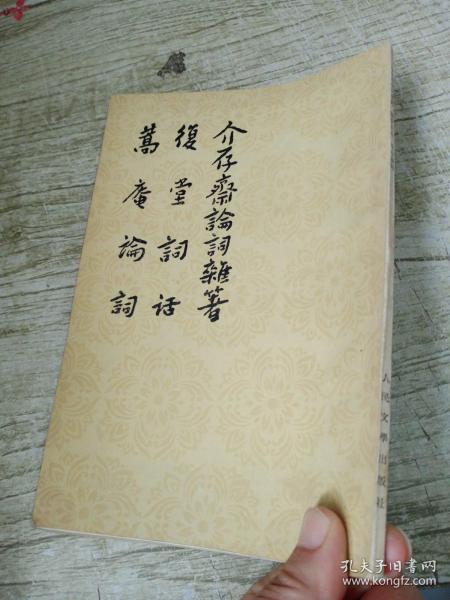 介存齋論詞雜著
復堂詞话
蒿庵論詞
人民文學出版社
孔夫子旧书网
www.kongfz.com